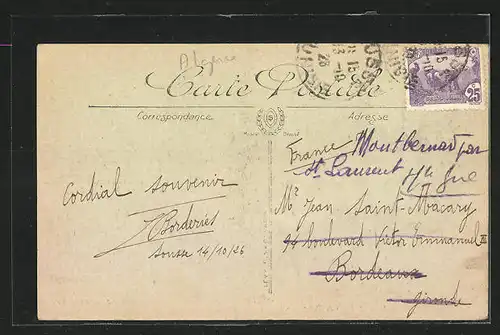 Algérie
Carte Postale
Correspondance
Adresse
SOUSSE
25
France Montbernard par
St Laurent
Hte Gne
Cordial souvenir
Borderies
Sousse 14/10/26
Mr Jean Saint-Macary
94 boulevard Victor Emmanuel III
Bordeaux
Gironde